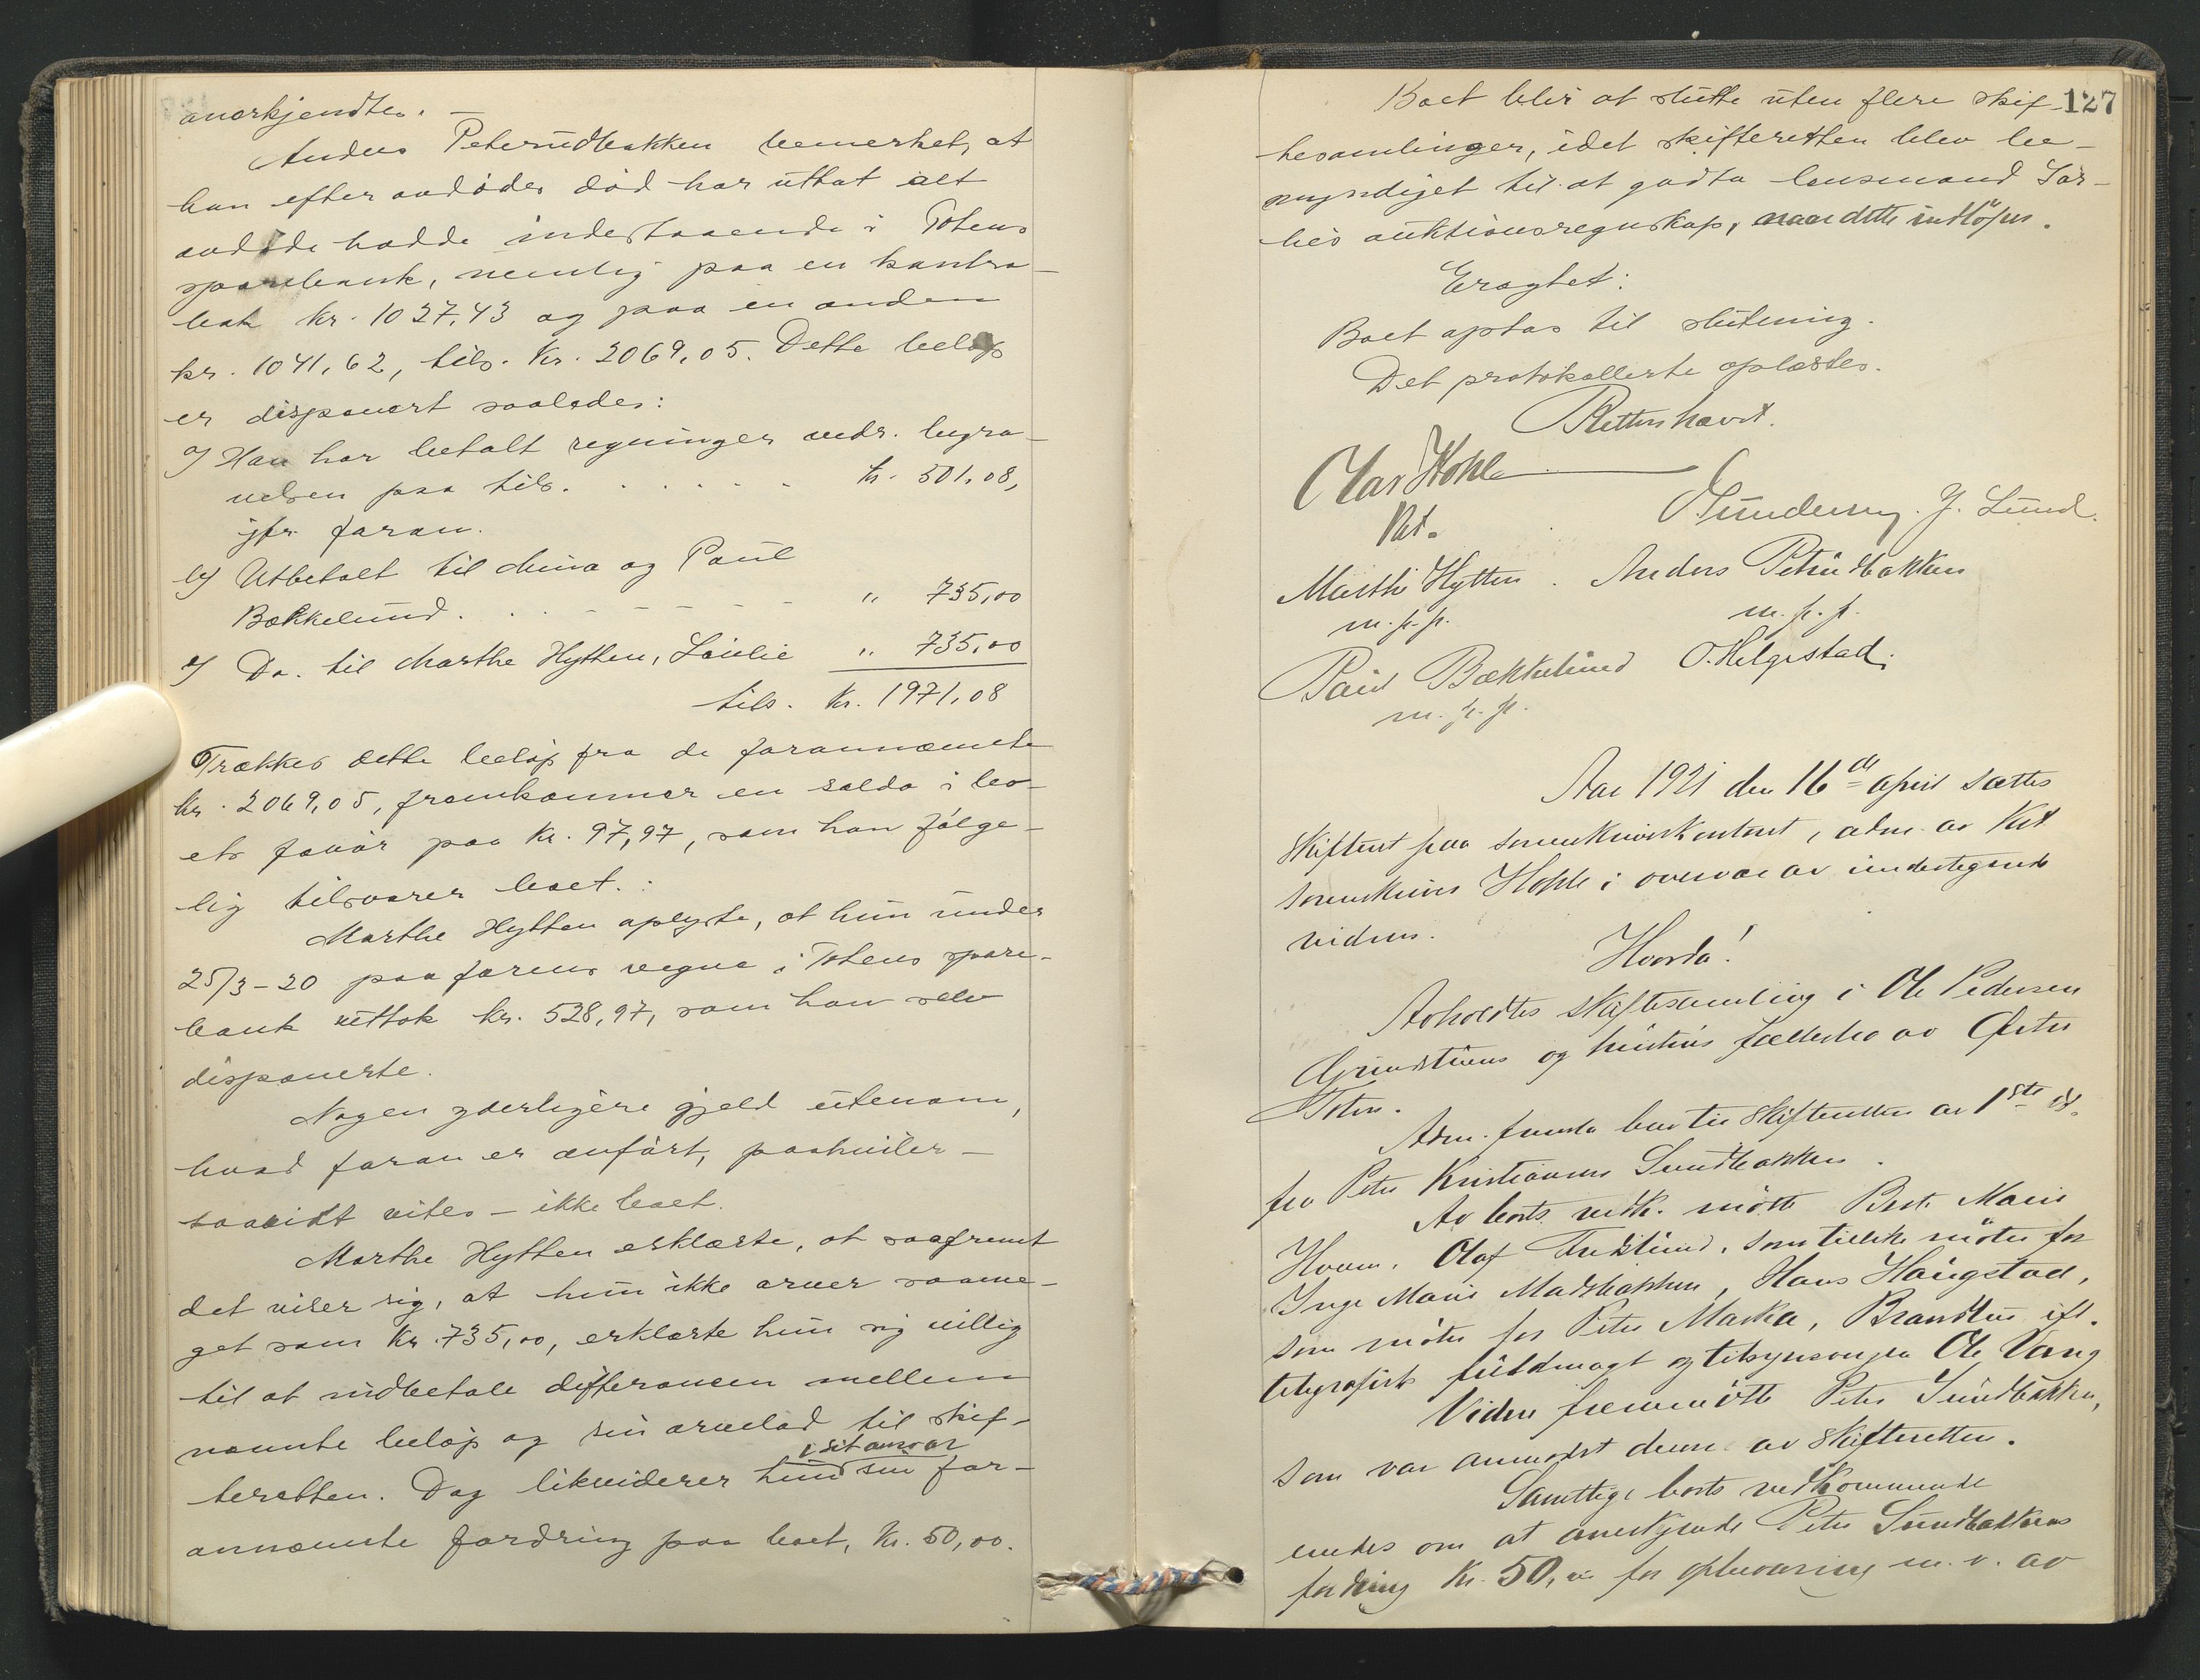 anerkjendtes. —
Anders Peterudbakken bemerket, at
han efter avdødes død har uttat alt
avdøde hadde indestaaende i Totens
sparebank, nemlig paa en kontra-
bok kr. 1027,43 og paa en anden
kr. 1041,62, tils. kr. 2069,05. Dette beløp
er disponert saaledes:
a) Han har betalt regninger vedr. begra-
velsen paa tils. . . . . . kr. 501,08,
jfr. foran.
b) Utbetalt til Mina og Paul
Bækkelund. . . - - - - „ 735,00
c) Do. til Marthe Hytten, Laulie „ 735,00
tils. kr. 1971,08
Trækkes dette beløp fra de forannævnte
kr. 2069,05, fremkommer en saldo i bo-
ets favør paa kr. 97,97, som han følge-
lig tilsvarer boet.
Marthe Hytten oplyste, at hun under
25/3-20 paa farens vegne i Totens spare-
bank uttok kr. 528,97, som han selv
disponerte.
Nogen yderligere gjeld utenom,
hvad foran er anført, paahviler —
saavidt vites — ikke boet.
Marthe Hytten erklærte, at saafremt
det viser sig, at hun ikke arver saame-
get som kr. 735,00, erklærte hun sig villig
til at indbetale differansen mellem
nævnte beløp og sin arvelod til skif-
i sit ansvar
teretten. Dog likviderer hun sin for-
annævnte fordring paa boet, kr. 50,00.
127
Boet blir at slutte uten flere skif-
tesamlinger, idet skifteretten blev be-
myndiget til at godta lensmand Sør-
lies auktionsregnskap, naar dette indløper.
Eragtet:
Boet optas til slutning.
Det protokollerte oplæstes.
Retten hævet.
Olav Hohle
Kst.
Gundersen. J. Lund.
Marthe Hytten. Anders Peterudbakken
m. p. p. m. p. p.
Paul Bækkelund O. Helgestad.
m. p. p.
Aar 1921 den 16de april sattes
skifteret paa sorenskriverkontoret, adm. av Kst
sorenskriver Hohle i overvær av undertegnede
vidner.
Hvorda!
Avholdtes skiftesamling i Ole Pedersen
Grimstuens og hustrus fællesbo av Østre
Toten.
Adm. fremla brev til skifteretten av 1ste ds.
fra Peter Kristiansen Sundbakken.
Av boets vedk. møtte Berte Marie
Hoem, Olaf Fredslund, som tillike møter for
Inge Marie Madsbakken, Hans Haugstad,
som møter for Peter Marka, Brandbu ifl.
telegrafisk fuldmagt og tilsynsverge Ole Vang
Videre fremmøtte Peter Sundbakken,
som var anmodet derom av skifteretten.
Samtlige boets vedkommende
enedes om at anerkjende Peter Sundbakkens
fordring kr. 50,00 for opbevaring m. v. av